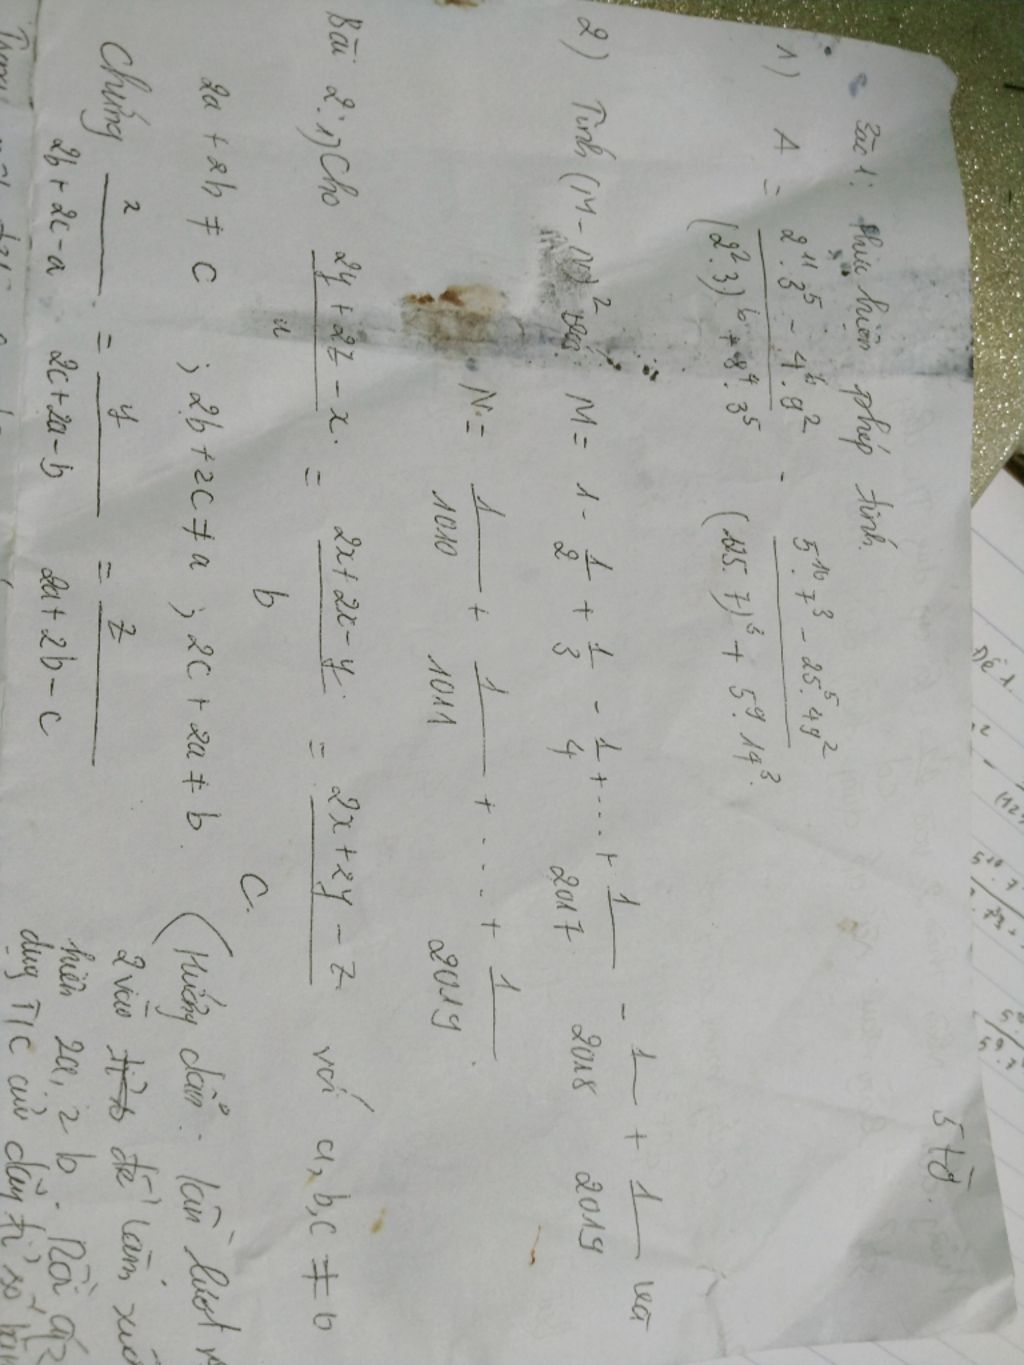 5 tờ.
Bài 1: Thực hiện phép tính.
1) A = (2^11.3^5 - 4^6.9^2) / ((2^2.3)^6 + 8^4.3^5) - (5^10.7^3 - 25^5.49^2) / ((125.7)^3 + 5^9.14^3.)
2) Tính (M - N)^2 với: M = 1 - 1/2 + 1/3 - 1/4 + ... + 1/2017 - 1/2018 + 1/2019 và
N = 1/1010 + 1/1011 + ... + 1/2019
Bài 2: 1) Cho (2y + 2z - x)/a = (2x + 2x - y)/b = (2x + 2y - z)/c. với a, b, c ≠ 0
2a + 2b ≠ c ; 2b + 2c ≠ a ; 2c + 2a ≠ b. (Hướng dẫn: lần lượt
Chứng x/(2b + 2c - a) = y/(2c + 2a - b) = z/(2a + 2b - c)
2 vào để làm
hiện 2a, 2b. Rồi
dụng T/C của dãy tỉ số